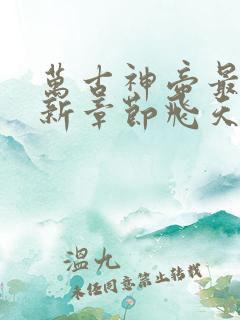 萬古神帝最
新章節飛天
溫九
未经同意禁止转载